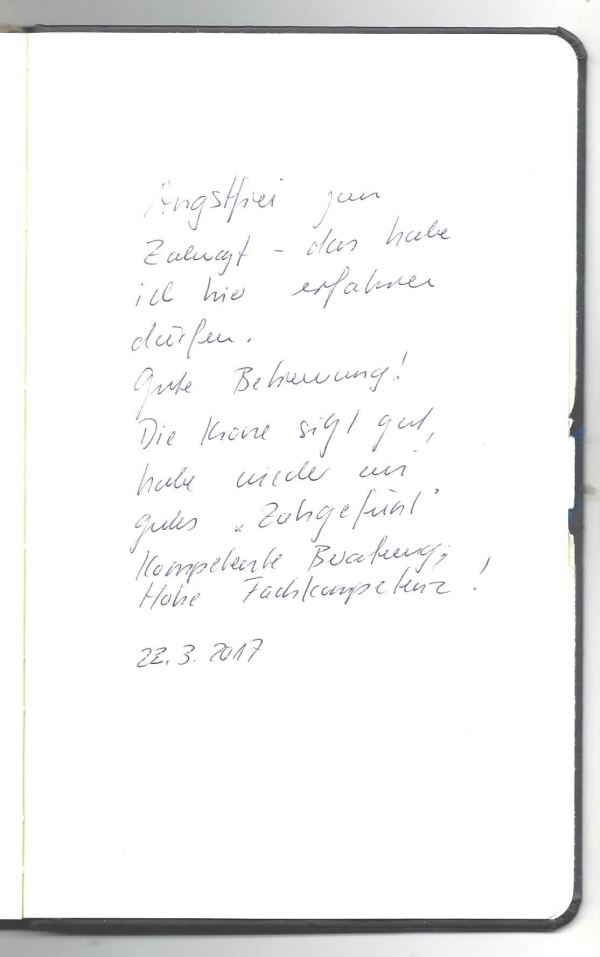 Angstfrei zum
Zahnarzt – das habe
ich hier erfahren
dürfen.
Gute Betreuung!
Die Krone sitzt gut,
habe wieder ein
gutes „Zahngefühl"
Kompetente Beratung,
Hohe Fachkompetenz!
22.3.2017